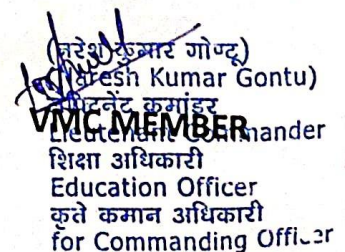 (नरेश कुमार गोन्टू)
(Naresh Kumar Gontu)
लेफ्टिनेंट कमांडर
VMC MEMBER
Lieutenant Commander
शिक्षा अधिकारी
Education Officer
कृते कमान अधिकारी
for Commanding Officer